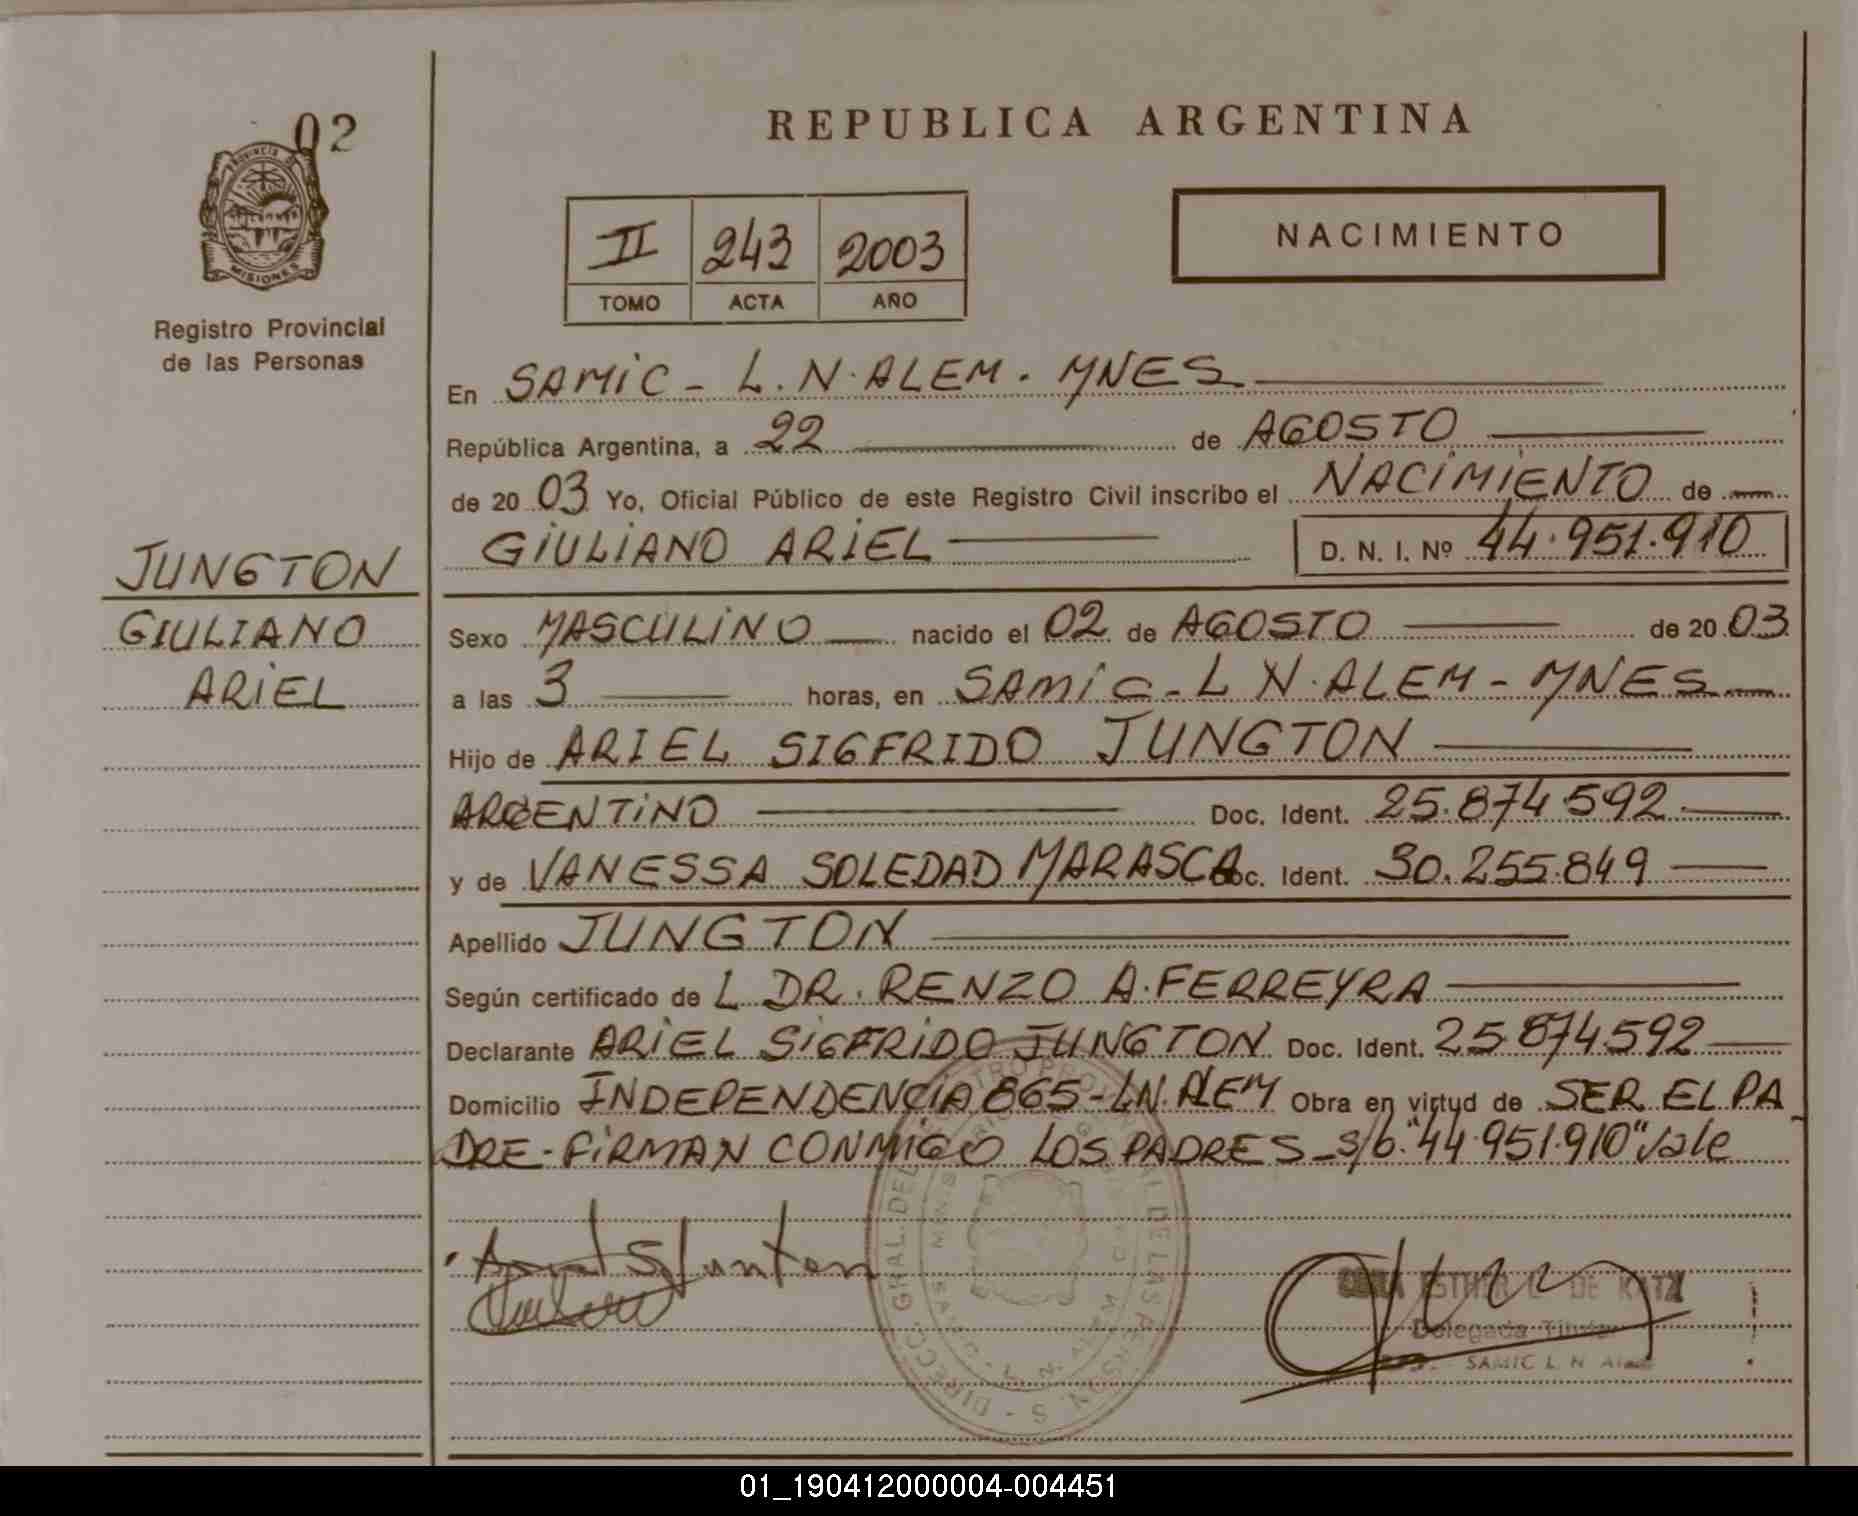 02
PROVINCIA DE
MISIONES
Registro Provincial
de las Personas
JUNGTON
GIULIANO
ARIEL
REPUBLICA ARGENTINA
II 243 2003
TOMO ACTA AÑO
NACIMIENTO
En SAMIC - L.N.ALEM. MNES
República Argentina, a 22 de AGOSTO
de 2003 Yo, Oficial Público de este Registro Civil inscribo el NACIMIENTO de
GIULIANO ARIEL D. N. I. Nº 44.951.910
Sexo MASCULINO nacido el 02 de AGOSTO de 2003
a las 3 horas, en SAMIC - L N.ALEM - MNES
Hijo de ARIEL SIGFRIDO JUNGTON
ARGENTINO Doc. Ident. 25.874.592
y de VANESSA SOLEDAD MARASCA Doc. Ident. 30.255.849
Apellido JUNGTON
Según certificado de L DR. RENZO A. FERREYRA
Declarante ARIEL SIGFRIDO JUNGTON Doc. Ident. 25.874.592
Domicilio INDEPENDENCIA 865 - L.N. ALEM Obra en virtud de SER EL PA
DRE - FIRMAN CONMIGO LOS PADRES - S/b. "44.951.910" Vale
ESTHER DE KATZ
Delegada Titular
SAMIC L. N. Alem
01_190412000004-004451